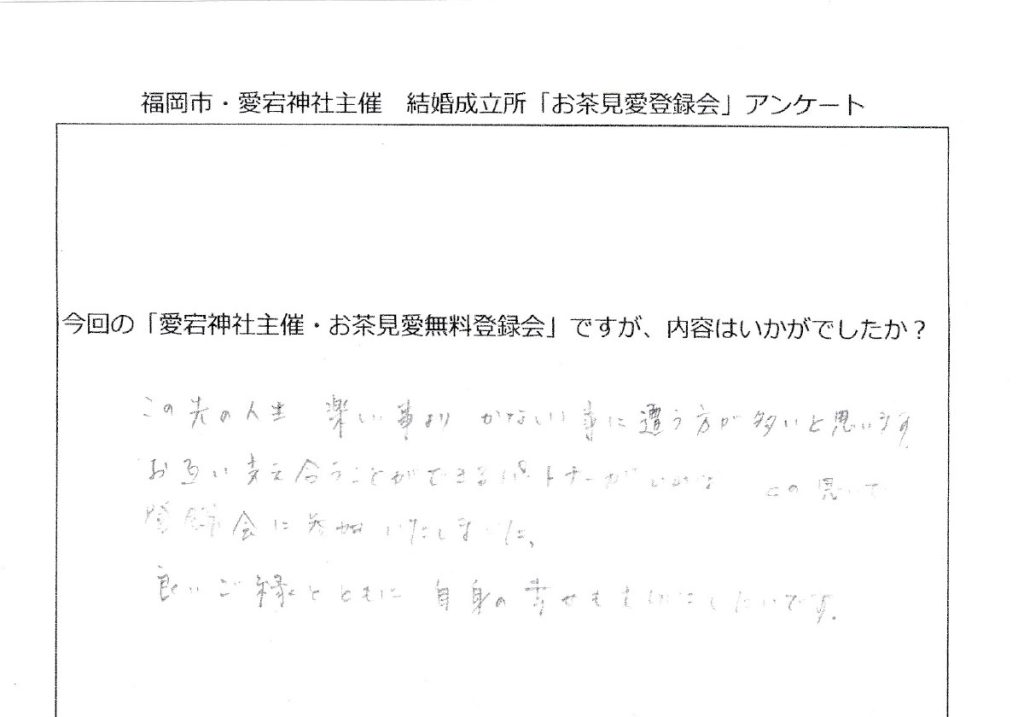 福岡市・愛宕神社主催　結婚成立所「お茶見愛登録会」アンケート
今回の「愛宕神社主催・お茶見愛無料登録会」ですが、内容はいかがでしたか？
この先の人生 楽しい事より かなしい事に遭う方が多いと思います。
お互い支え合うことができるパートナーがいればな との思いで
登録会に参加いたしました。
良いご縁とともに 自身の幸せも大切にしたいです。